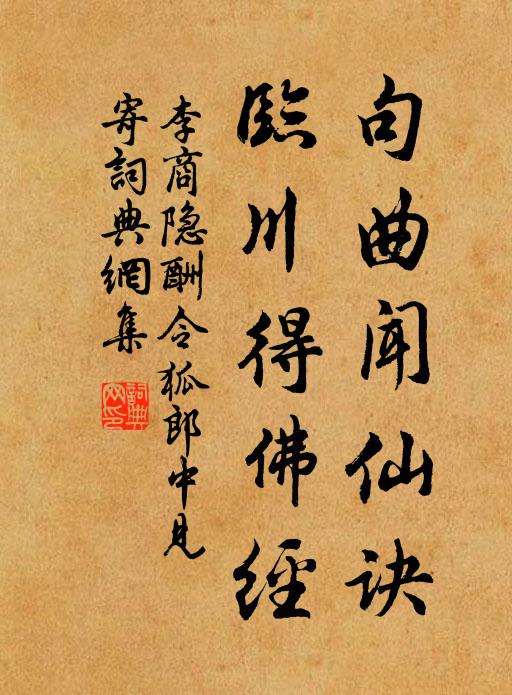 句曲闻仙诀
臨川得佛經
李商隐酬令狐郎中見
寄詞典網集
詞典網印